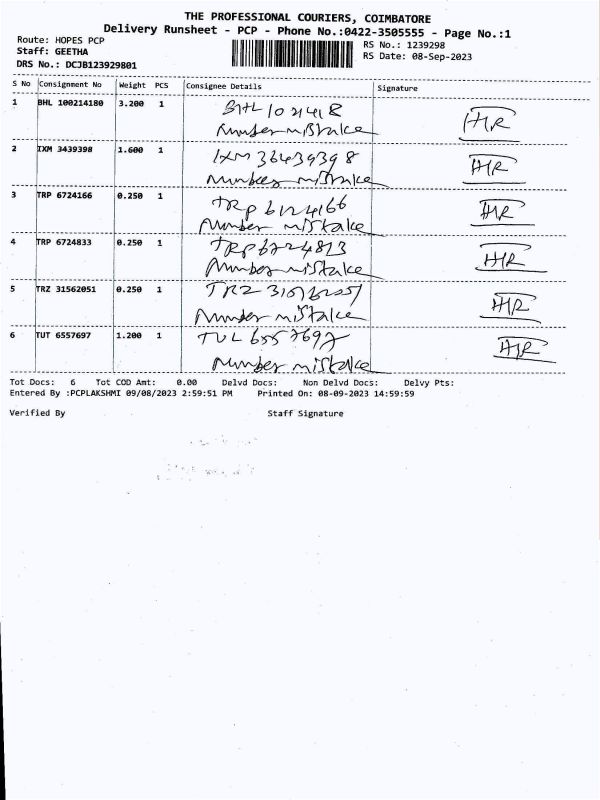 THE PROFESSIONAL COURIERS, COIMBATORE
Delivery Runsheet - PCP - Phone No.:0422-3505555 - Page No.:1
Route: HOPES PCP RS No.: 1239298
Staff: GEETHA RS Date: 08-Sep-2023
DRS No.: DCJB123929801
S No Consignment No Weight PCS Consignee Details Signature
1 BHL 100214180 3.200 1
Number mistake
2 IXM 3439398 1.600 1
Number mistake
3 TRP 6724166 0.250 1
Number mistake
4 TRP 6724833 0.250 1
Number mistake
5 TRZ 31562051 0.250 1
Number mistake
6 TUT 6557697 1.200 1 TUL 6557697
Number mistake
Tot Docs: 6 Tot COD Amt: 0.00 Delvd Docs: Non Delvd Docs: Delvy Pts:
Entered By :PCPLAKSHMI 09/08/2023 2:59:51 PM Printed On: 08-09-2023 14:59:59
Verified By Staff Signature